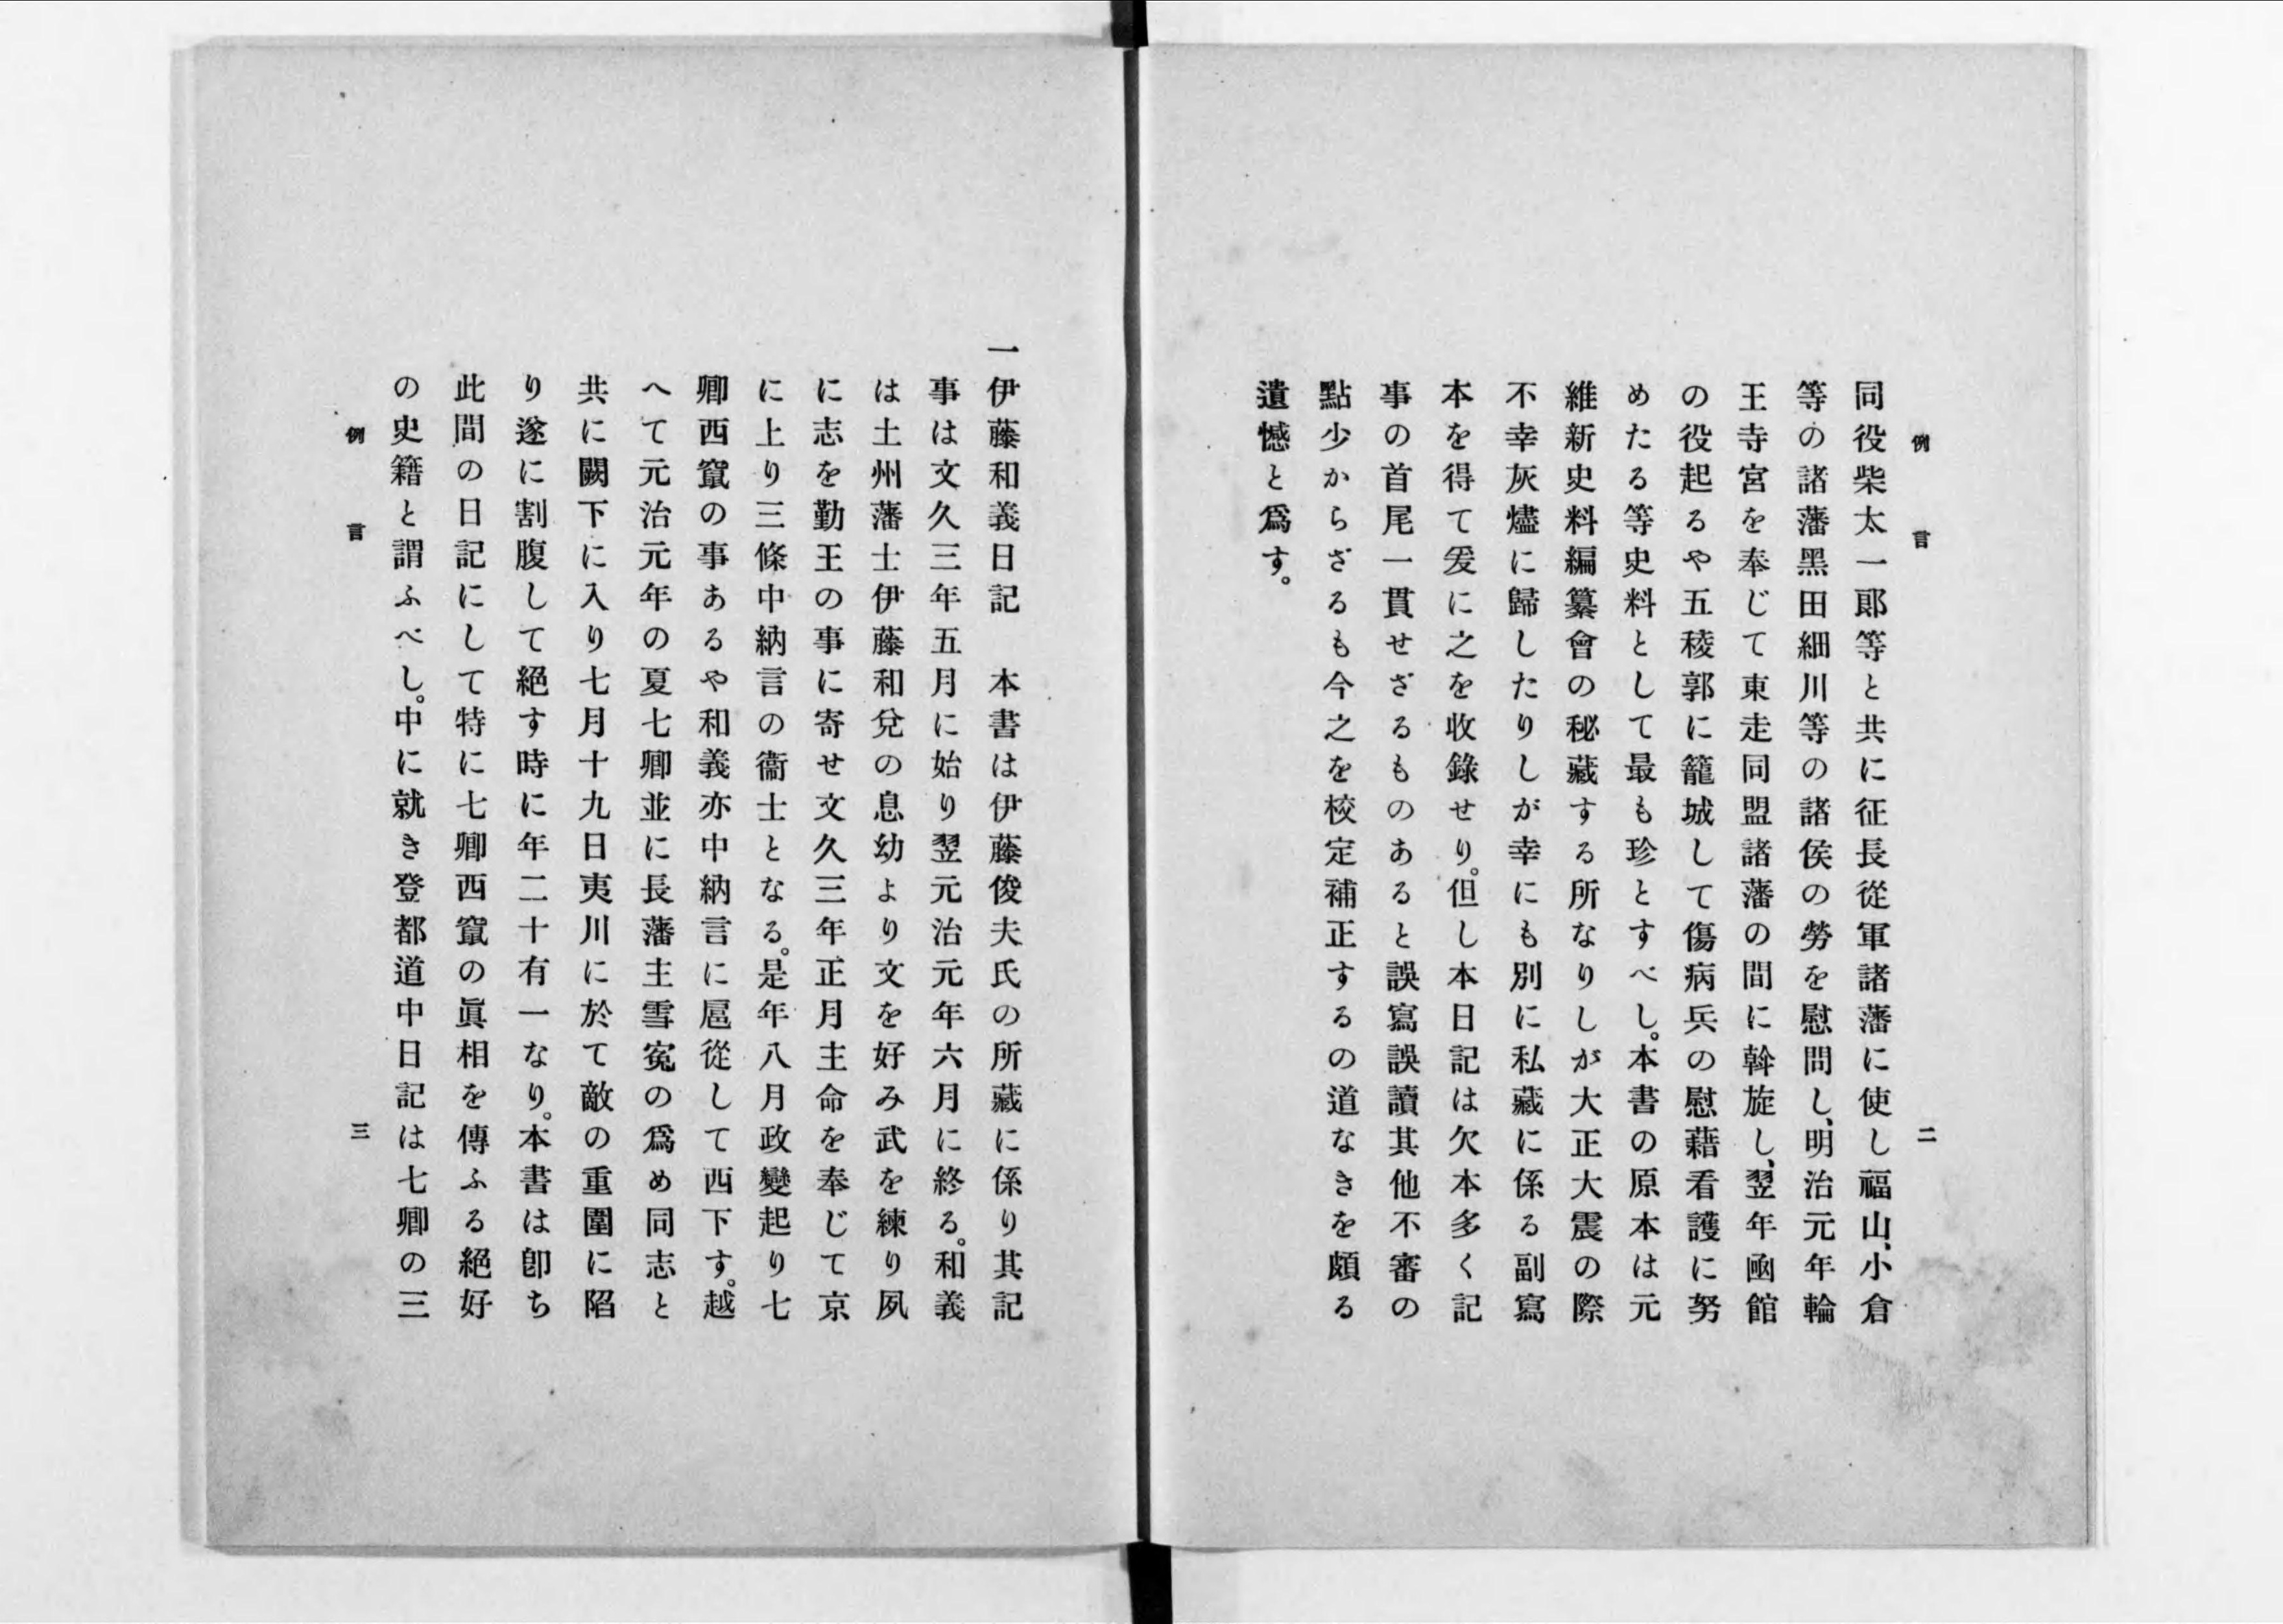 例言
二
同役柴太一郞等と共に征長從軍諸藩に使し福山、小倉
等の諸藩黑田細川等の諸侯の勞を慰問し、明治元年輪
王寺宮を奉じて東走同盟諸藩の間に斡旋し、翌年凾館
の役起るや五稜郭に籠城して傷病兵の慰藉看護に努
めたる等史料として最も珍とすべし。本書の原本は元
維新史料編纂會の秘藏する所なりしが大正大震の際
不幸灰燼に歸したりしが幸にも別に私藏に係る副寫
本を得て爰に之を收錄せり。但し本日記は欠本多く記
事の首尾一貫せざるものあると誤寫誤讀其他不審の
點少からざるも今之を校定補正するの道なきを頗る
遺憾と爲す。
一伊藤和義日記　本書は伊藤俊夫氏の所藏に係り其記
事は文久三年五月に始り翌元治元年六月に終る。和義
は土州藩士伊藤和兌の息幼より文を好み武を練り夙
に志を勤王の事に寄せ文久三年正月主命を奉じて京
に上り三條中納言の衞士となる。是年八月政變起り七
卿西竄の事あるや和義亦中納言に扈從して西下す。越
へて元治元年の夏七卿並に長藩主雪寃の爲め同志と
共に闕下に入り七月十九日夷川に於て敵の重圍に陷
り遂に割腹して絕す時に年二十有一なり。本書は卽ち
此間の日記にして特に七卿西竄の眞相を傳ふる絕好
の史籍と謂ふべし。中に就き登都道中日記は七卿の三
例言
三